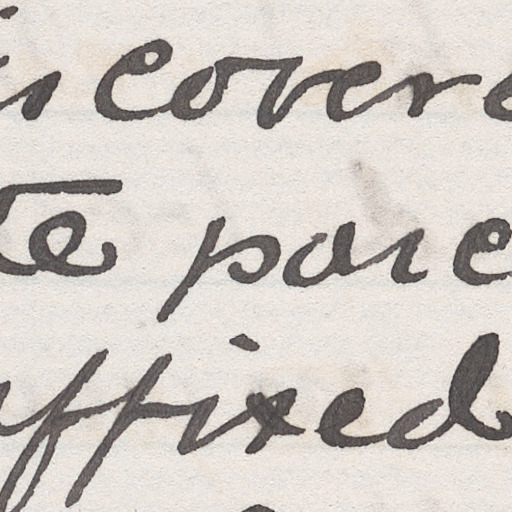 iscovere
te parc
affixed